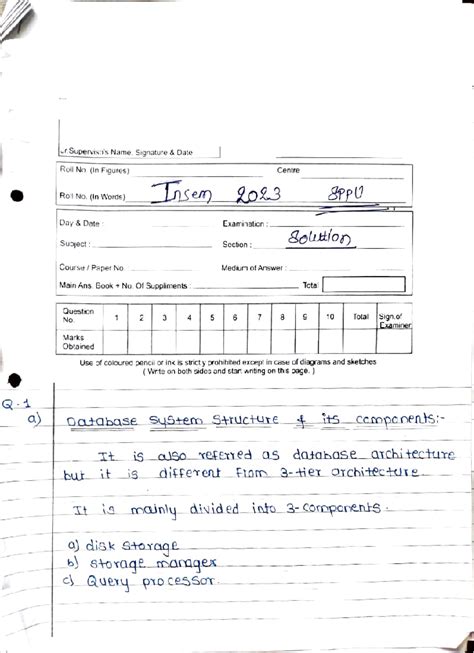 Jr.Supervisor's Name, Signature & Date
Roll No. (In Figures) Centre
Roll No. (In Words) Insem 2023 SPPU
Day & Date : Examination :
Subject : Section : Solution
Course / Paper No. Medium of Answer :
Main Ans. Book + No. Of Suppliments : Total
Question No. 1 2 3 4 5 6 7 8 9 10 Total Sign.of Examiner
Marks Obtained
Use of coloured pencil or ink is strictly prohibited except in case of diagrams and sketches
( Write on both sides and start writing on this page. )
Q.1
a) Database System Structure & its components:-
It is also referred as database architecture
but it is different from 3-tier architecture.
It is mainly divided into 3-components.
a) disk storage
b) storage manager
c) Query processor.